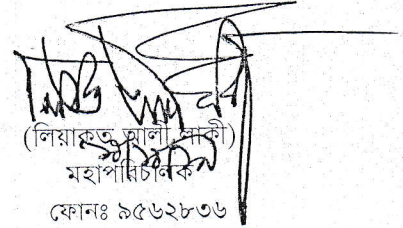 (লিয়াকত আলী লাকী)
মহাপরিচালক
ফোনঃ ৯৫৬২৮৩৬